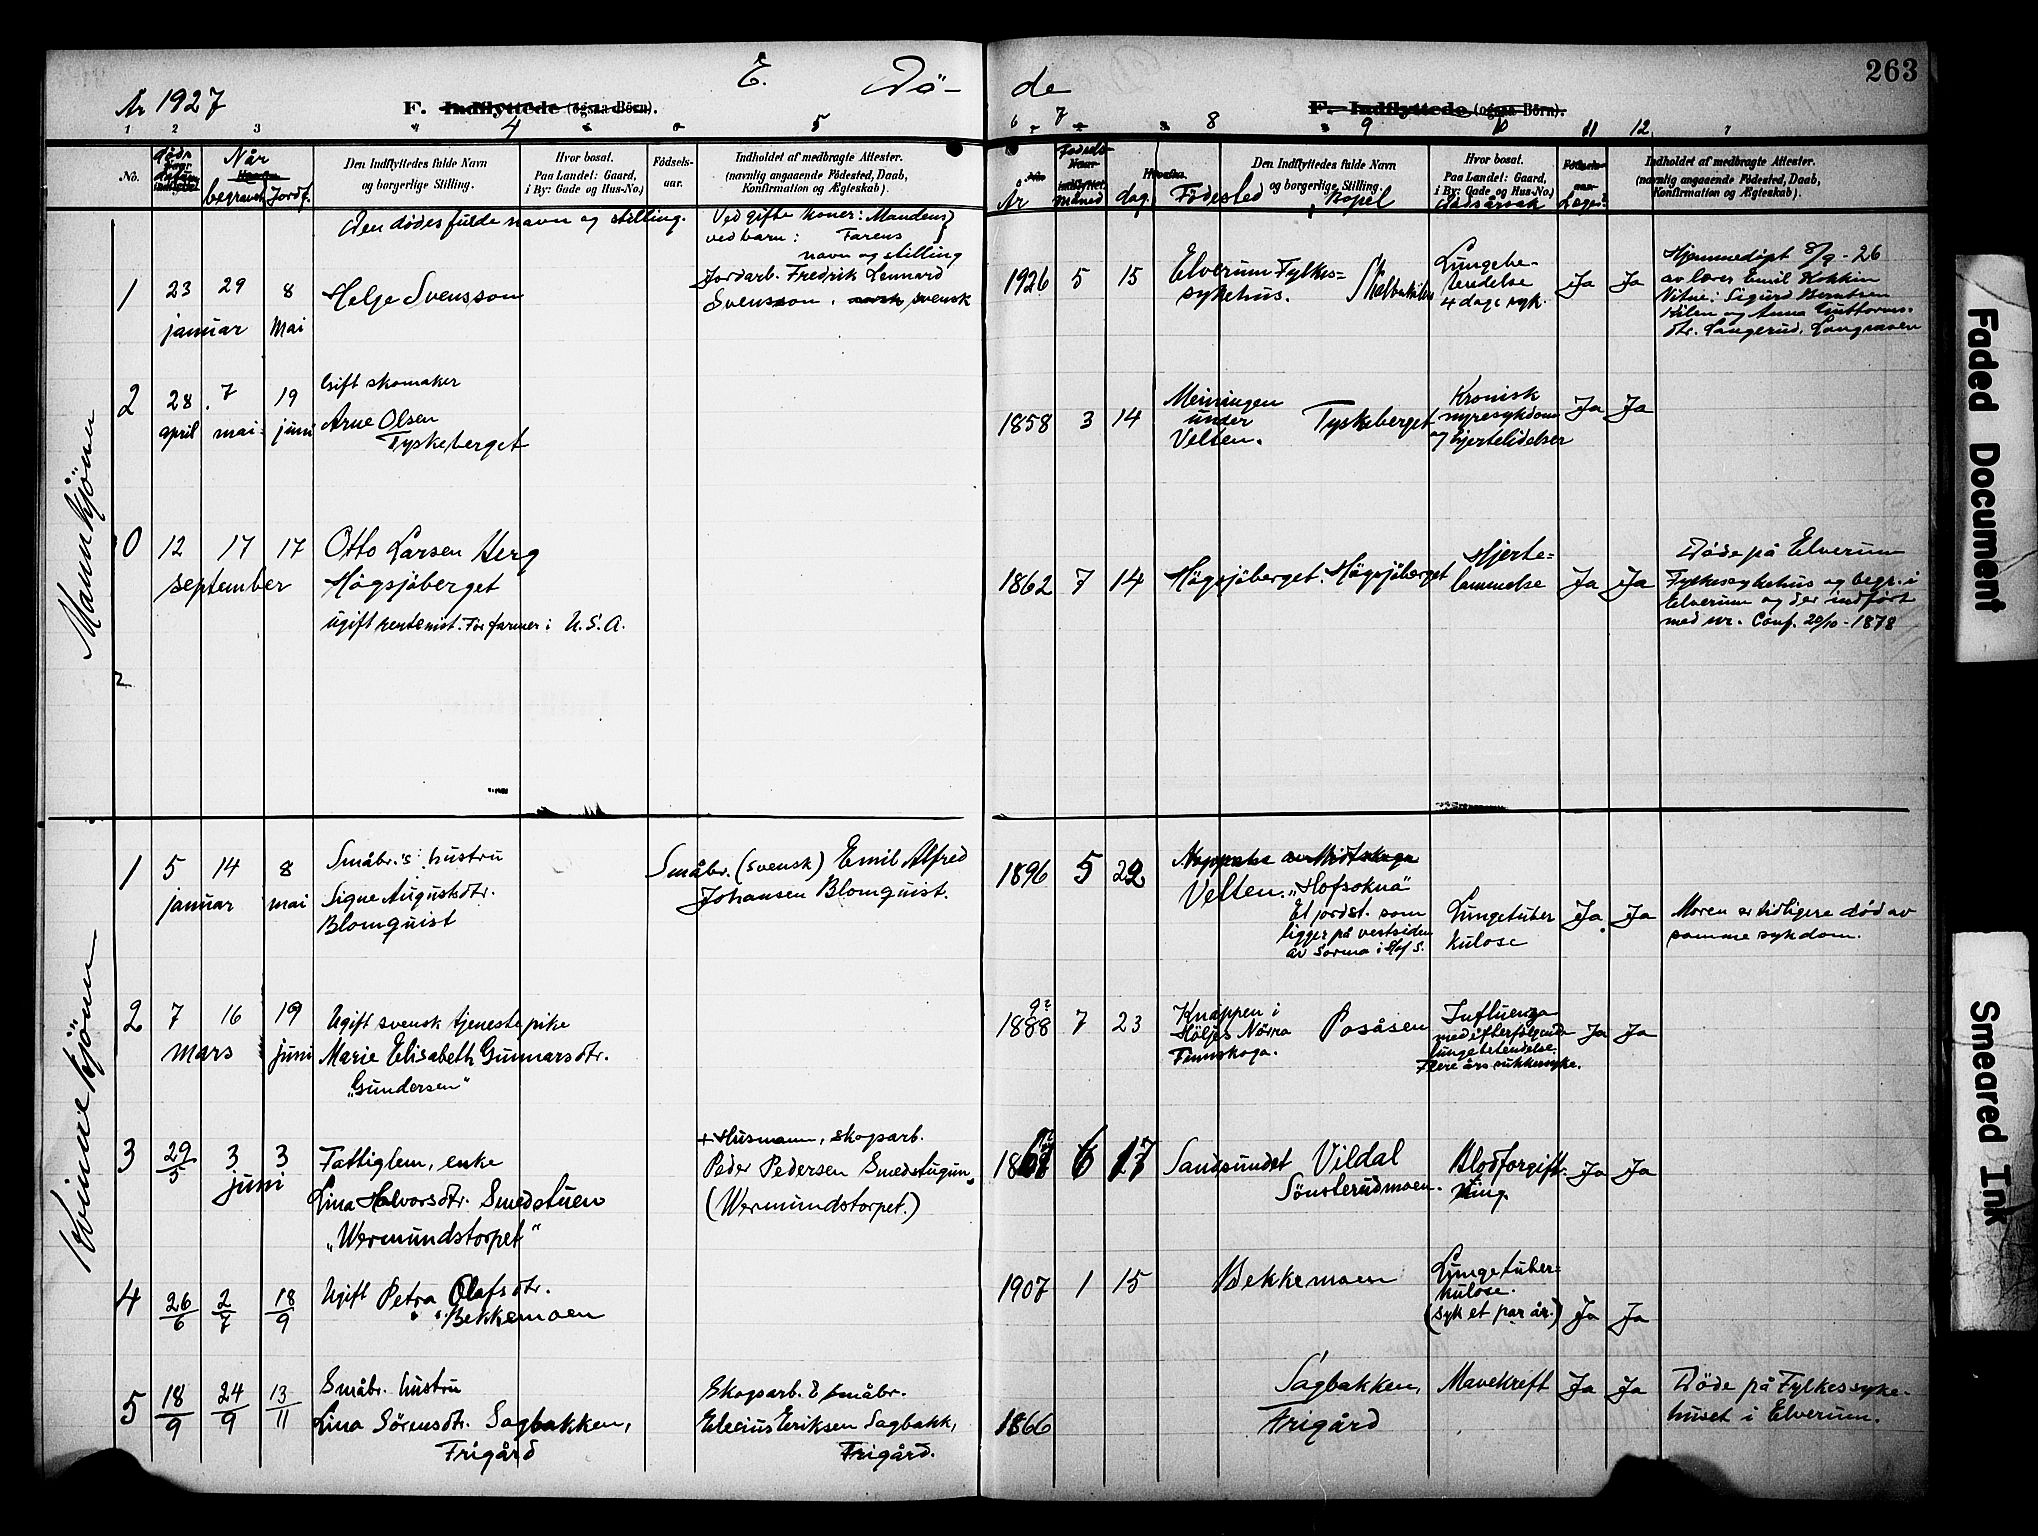 263
År 1927
E. Dö-
de
F. Indflyttede (ogsaa Börn).
F. Indflyttede (ogsaa Börn).
1 2 3 4 5
6 7 8 9 10 11 12
No.
Når
begravet Jordf.
Den Indflyttedes fulde Navn
og borgerlige Stilling.
Hvor bosat.
Paa Landet: Gaard,
i By: Gade og Hus-No.)
Födsels-
aar.
Indholdet af medbragte Attester.
(navnlig angaaende Födested, Daab,
Konfirmation og Ægteskab).
Fødsels-
År måned dag.
Födested
Den Indflyttedes fulde Navn
og borgerlige Stilling.
Bopel
Hvor bosat.
Paa Landet: Gaard,
i By: Gade og Hus-No.)
Dødsårsak
Indholdet af medbragte Attester.
(navnlig angaaende Födested, Daab,
Konfirmation og Ægteskab).
Den dødes fulde navn og stilling.
Ved gifte koner: Mandens
ved barn: Farens
navn og stilling
Mannkjönn
1 23 29 8
januar mai
Helge Svensson
Jordarb. Fredrik Lennard
Svensson, svensk
1926 5 15
Elverum Fylkes-
sykehus.
Skalbukilen
Lungebe-
tendelse
4 dage syk.
Ja Ja
Hjemmedøpt 8/9-26
av lærer Emil Kokkin
Vitne: Sigurd Berntsen
Kilen og Anna Guttorms-
dtr. Langerud, Langraaen
2 28 7 19
april mai juni
Gift skomaker
Arne Olsen
Tyskeberget
1858 3 14
Meiningen
under
Velten.
Tyskeberget
Kronisk
nyresykdom
og hjertelidelser
Ja Ja
0 12 17 17
september
Otto Larsen Berg
Högsjöberget
ugift rentenist. Før farmer i U.S.A.
1862 7 14
Högsjöberget. Högsjöberget
Hjerte-
lammelse
Ja Ja
Döde på Elverum
Fylkessykehus og begr. i
Elverum og der indført
med nr. Conf. 20/10-1878
2
Kvinnekjönn
1 5 14 8
januar mai
Småbr.'s hustru
Signe Augustsdtr.
Blomquist
Småbr. (svensk) Emil Alfred
Johansen Blomquist.
1896 5 22
Velten. "Hofsoknå"
Et jordst. som
ligger på vestsiden
av Sorma i Hof S.
Lungetuber
kulose
Ja Ja
Moren er tidligere död av
samme sykdom.
2 7 16 19
mars juni
Ugift svensk tjenestepike
Marie Elisabeth Gunnarsdtr.
"Gundersen"
1888 7 23
Knappen i
Höljes Norra
Finnskoga.
Posåsen
Influenza
med efterfølgende
lungebetendelse.
Flere års sukkersyke.
Ja Ja
3 29/5 3 3
juni
Fattiglem, enke
Lina Halvorsdtr. Smedstuen
"Wermundstorpet"
+ Husmann, skogsarb.
Peder Pedersen Smedstugun
(Wermundstorpet.)
6 17
Sandsundet
Vildal
Sönsterudmoen.
Blodforgift-
ning.
Ja Ja
4 26/6 2/7 18/9
Ugift Petra Olafsdtr.
Bekkemoen
1907 1 15
Bekkemoen
Lungetuber-
kulose.
(syk et par år.)
Ja Ja
5 18/9 24/9 13/11
Småbr. hustru
Lina Sörensdtr. Sagbakken,
Frigård
Skogsarb. & småbr.
Elecius Eriksen Sagbakk,
Frigård.
1866
Sagbakken,
Frigård
Mavekreft
Ja Ja
Döde på Fylkessyke-
huset i Elverum.
Faded Document
Smeared Ink